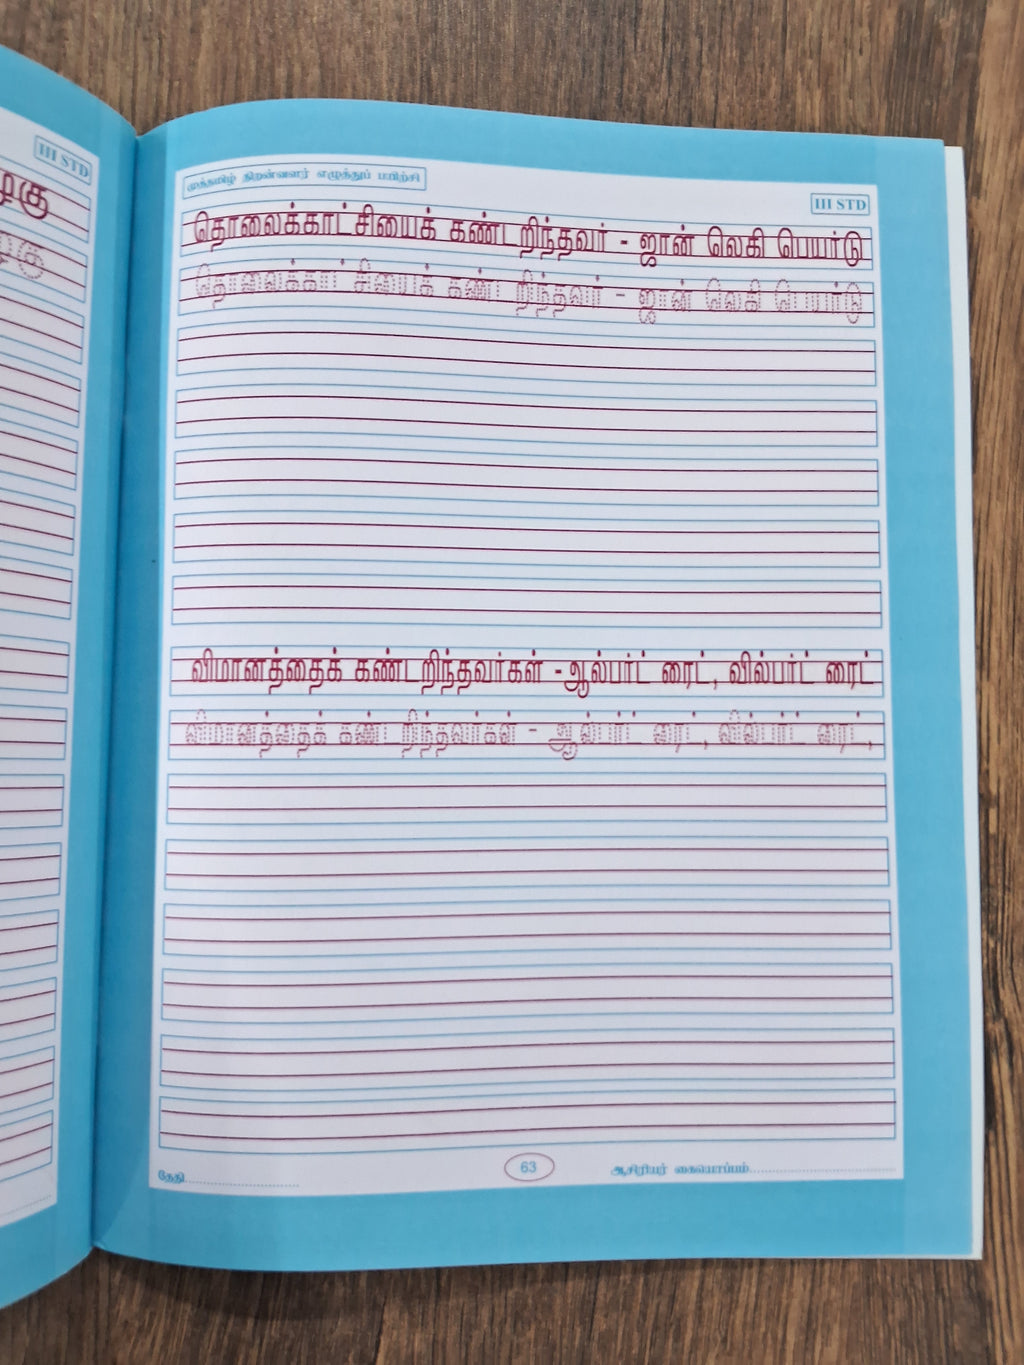 III STD
முத்தமிழ் திறன்வளர் எழுத்துப் பயிற்சி
III STD
தொலைக்காட்சியைக் கண்டறிந்தவர் - ஜான் லெகி பெயர்டு
தொலைக்காட்சியைக் கண்டறிந்தவர் - ஜான் லெகி பெயர்டு
விமானத்தைக் கண்டறிந்தவர்கள் -ஆல்பர்ட் ரைட், வில்பர்ட் ரைட்
விமானத்தைக் கண்டறிந்தவர்கள் - ஆல்பர்ட் ரைட், வில்பர்ட் ரைட்,
தேதி..............................
63
ஆசிரியர் கையொப்பம்........................................